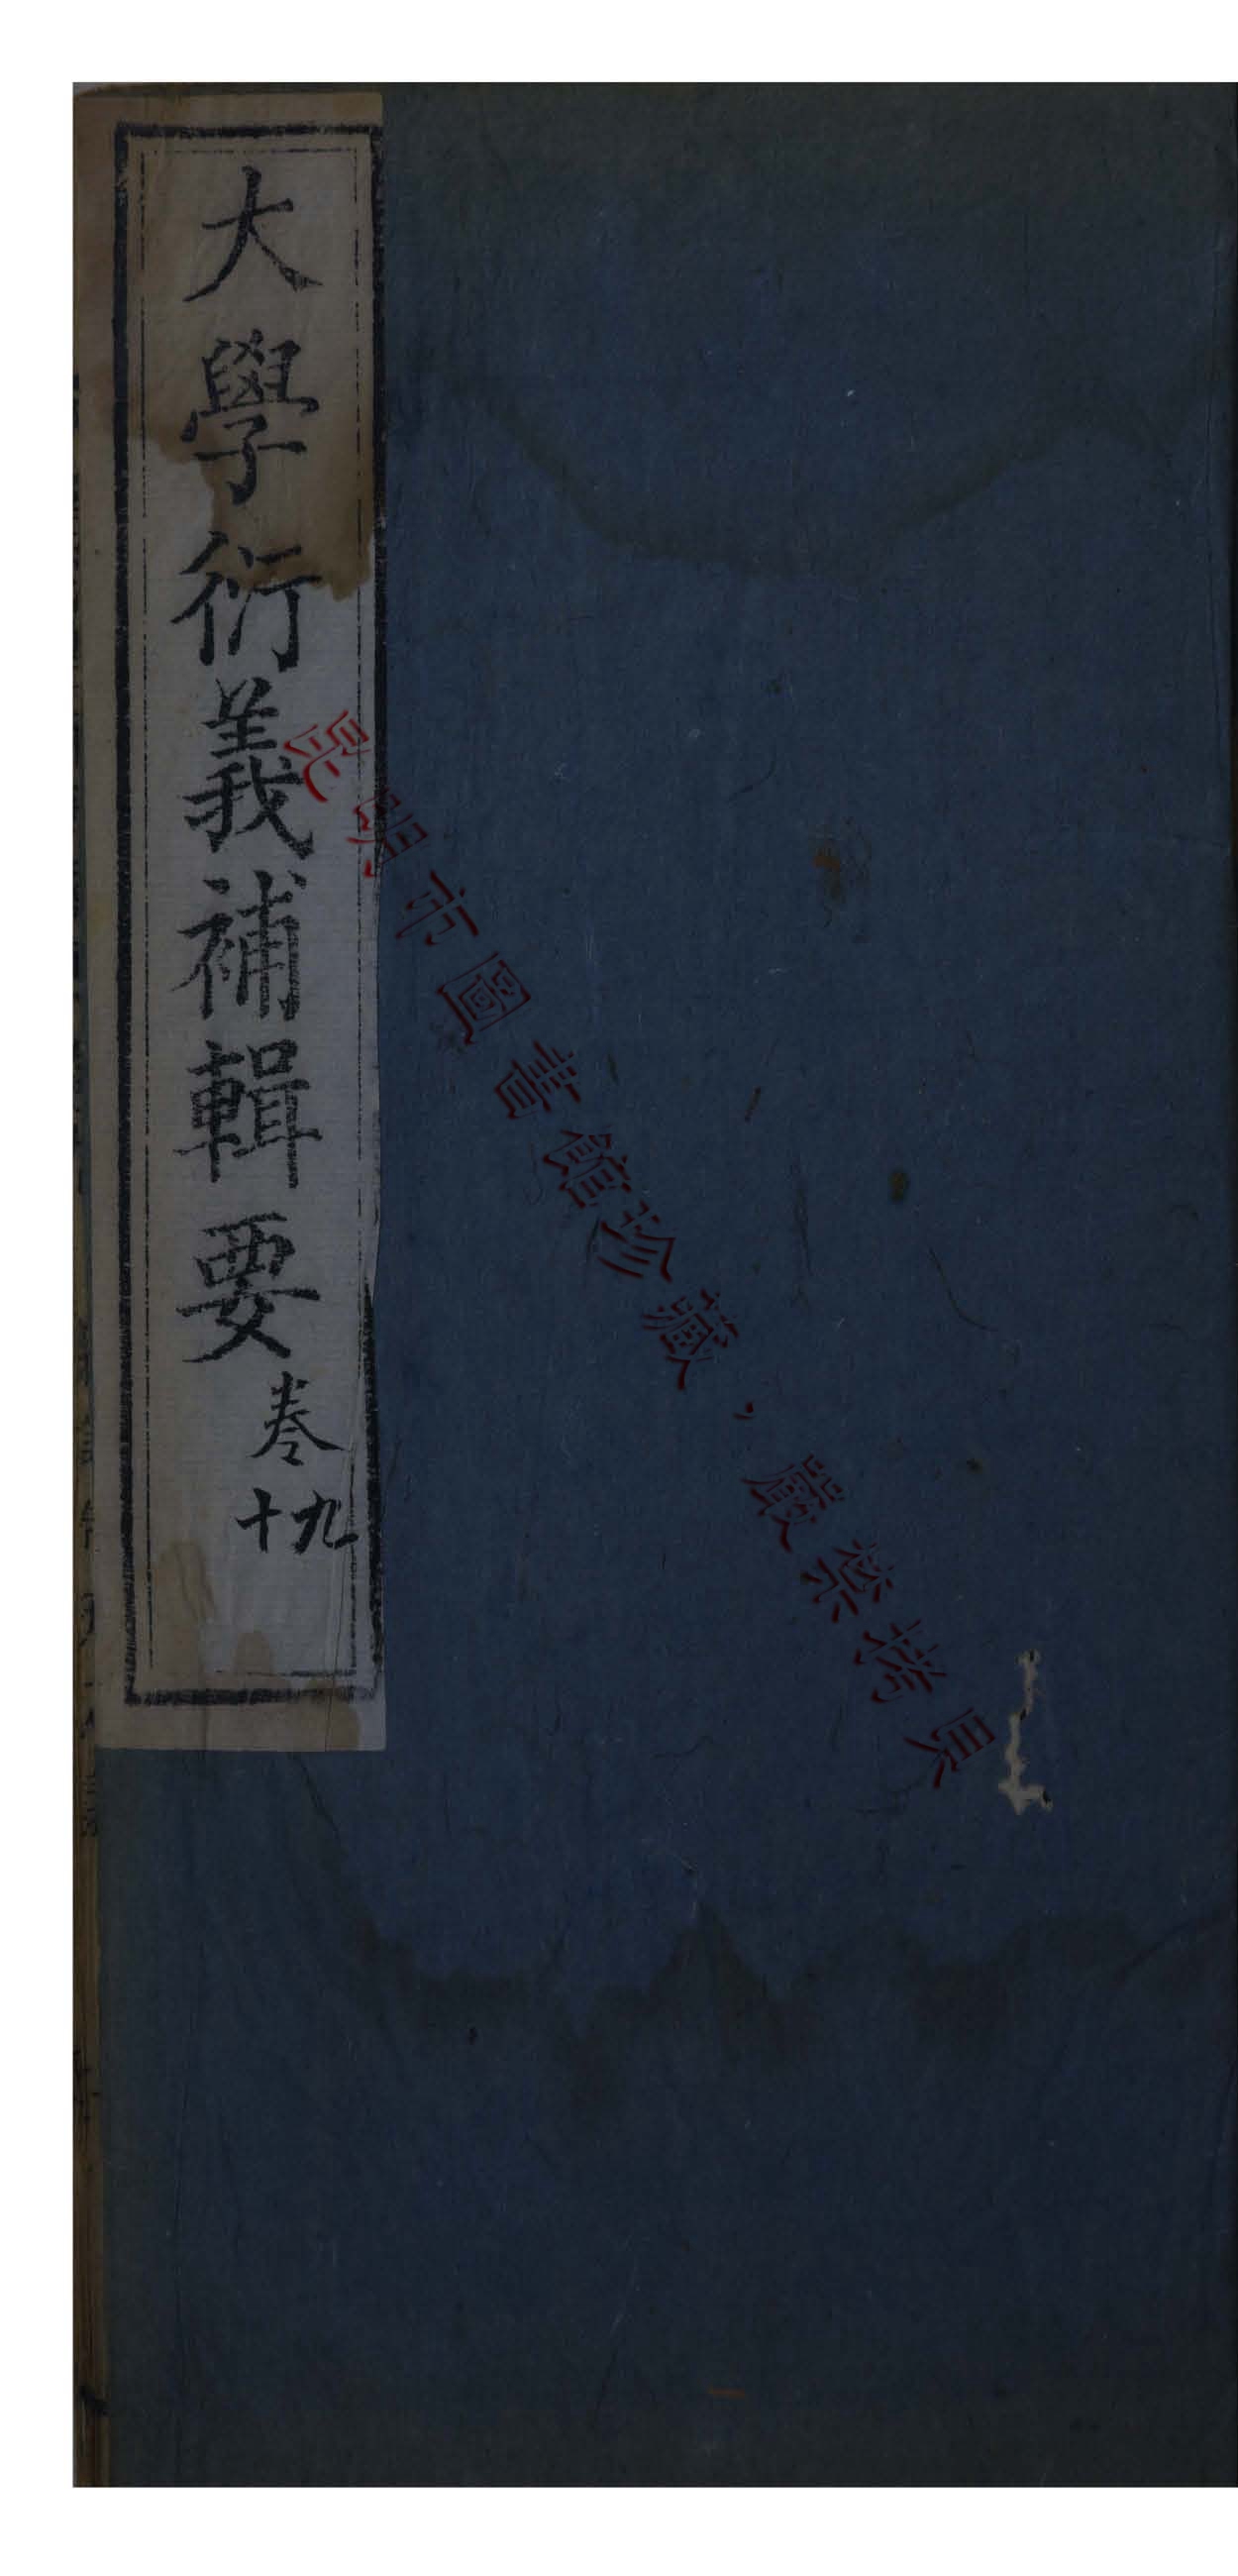 大學衍義補輯要
卷
九十
昆明市圖書館珍�，嚴禁拷貝